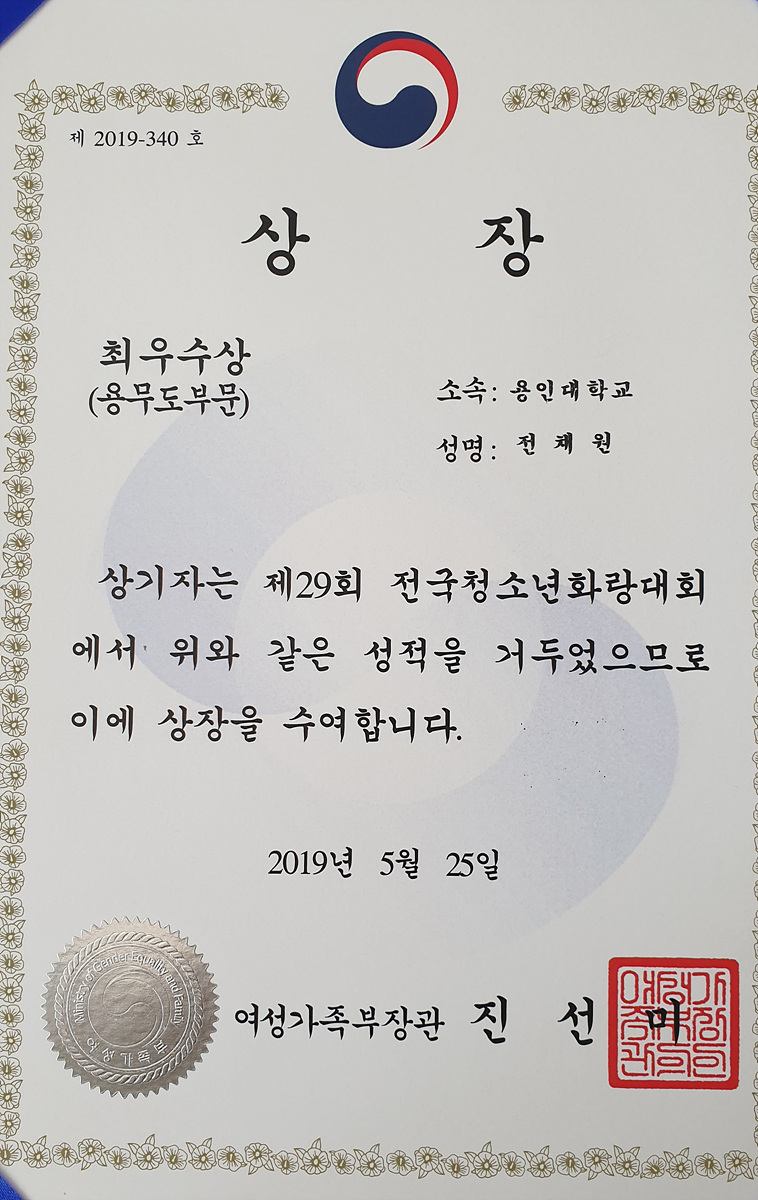 제 2019-340 호
상 장
최우수상
(용무도부문)
소속: 용인대학교
성명: 전 채 원
상기자는 제29회 전국청소년화랑대회
에서 위와 같은 성적을 거두었으므로
이에 상장을 수여합니다.
2019년 5월 25일
Ministry of Gender Equality and Family
여성가족부
여성가족부장관 진 선 미